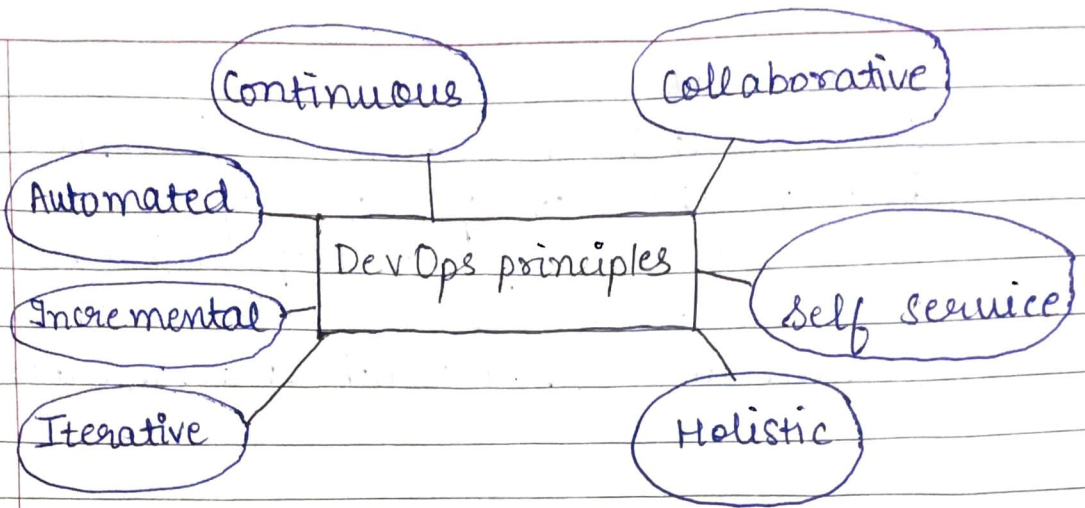 Continuous
Collaborative
Automated
DevOps principles
Self service
Incremental
Iterative
Holistic